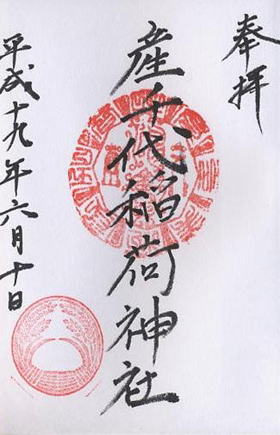 奉拝
産千代稲荷神社
平成十九年六月十日